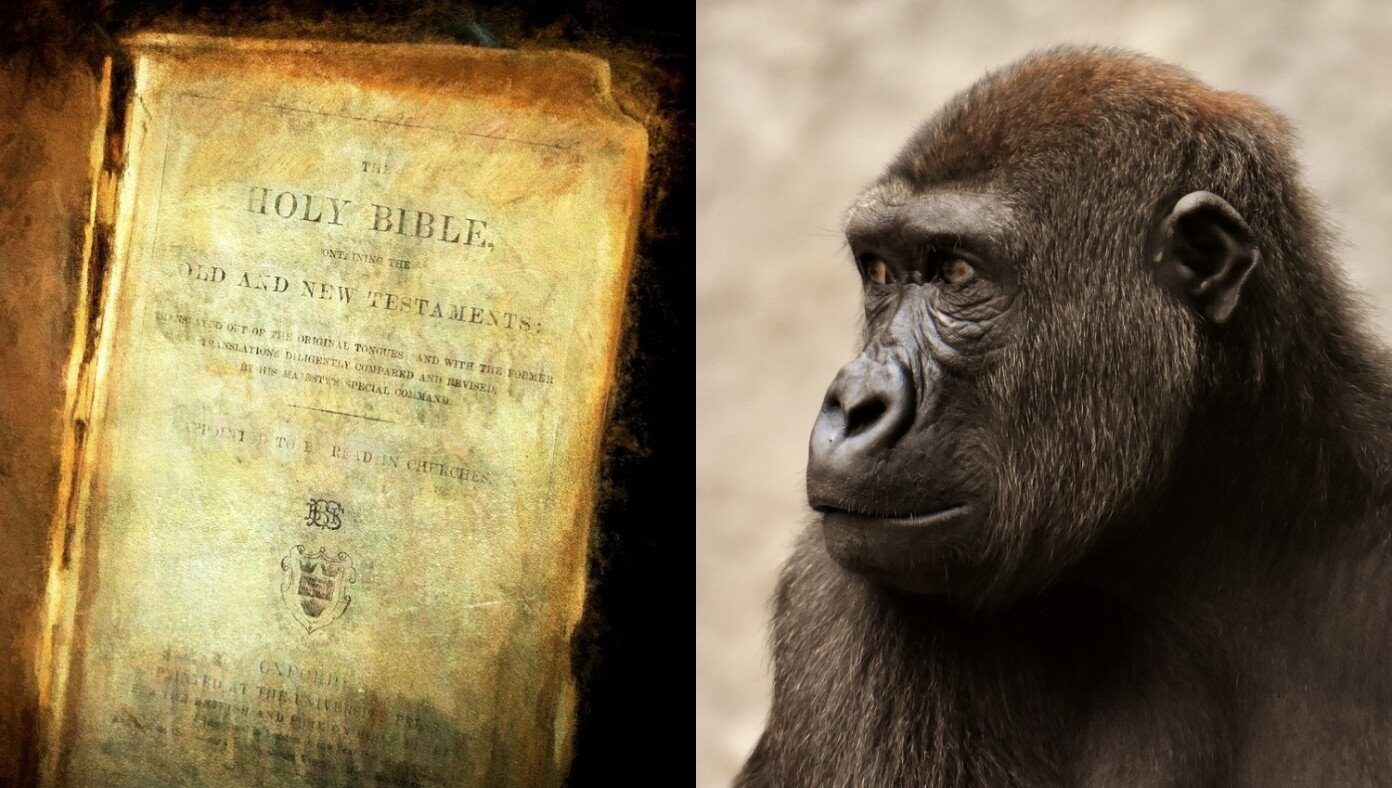 THE
HOLY BIBLE,
CONTAINING THE
OLD AND NEW TESTAMENTS:
TRANSLATED OUT OF THE ORIGINAL TONGUES; AND WITH THE FORMER
TRANSLATIONS DILIGENTLY COMPARED AND REVISED,
BY HIS MAJESTY'S SPECIAL COMMAND.
APPOINTED TO BE READ IN CHURCHES.
BFBS
OXFORD:
PRINTED AT THE UNIVERSITY
AND